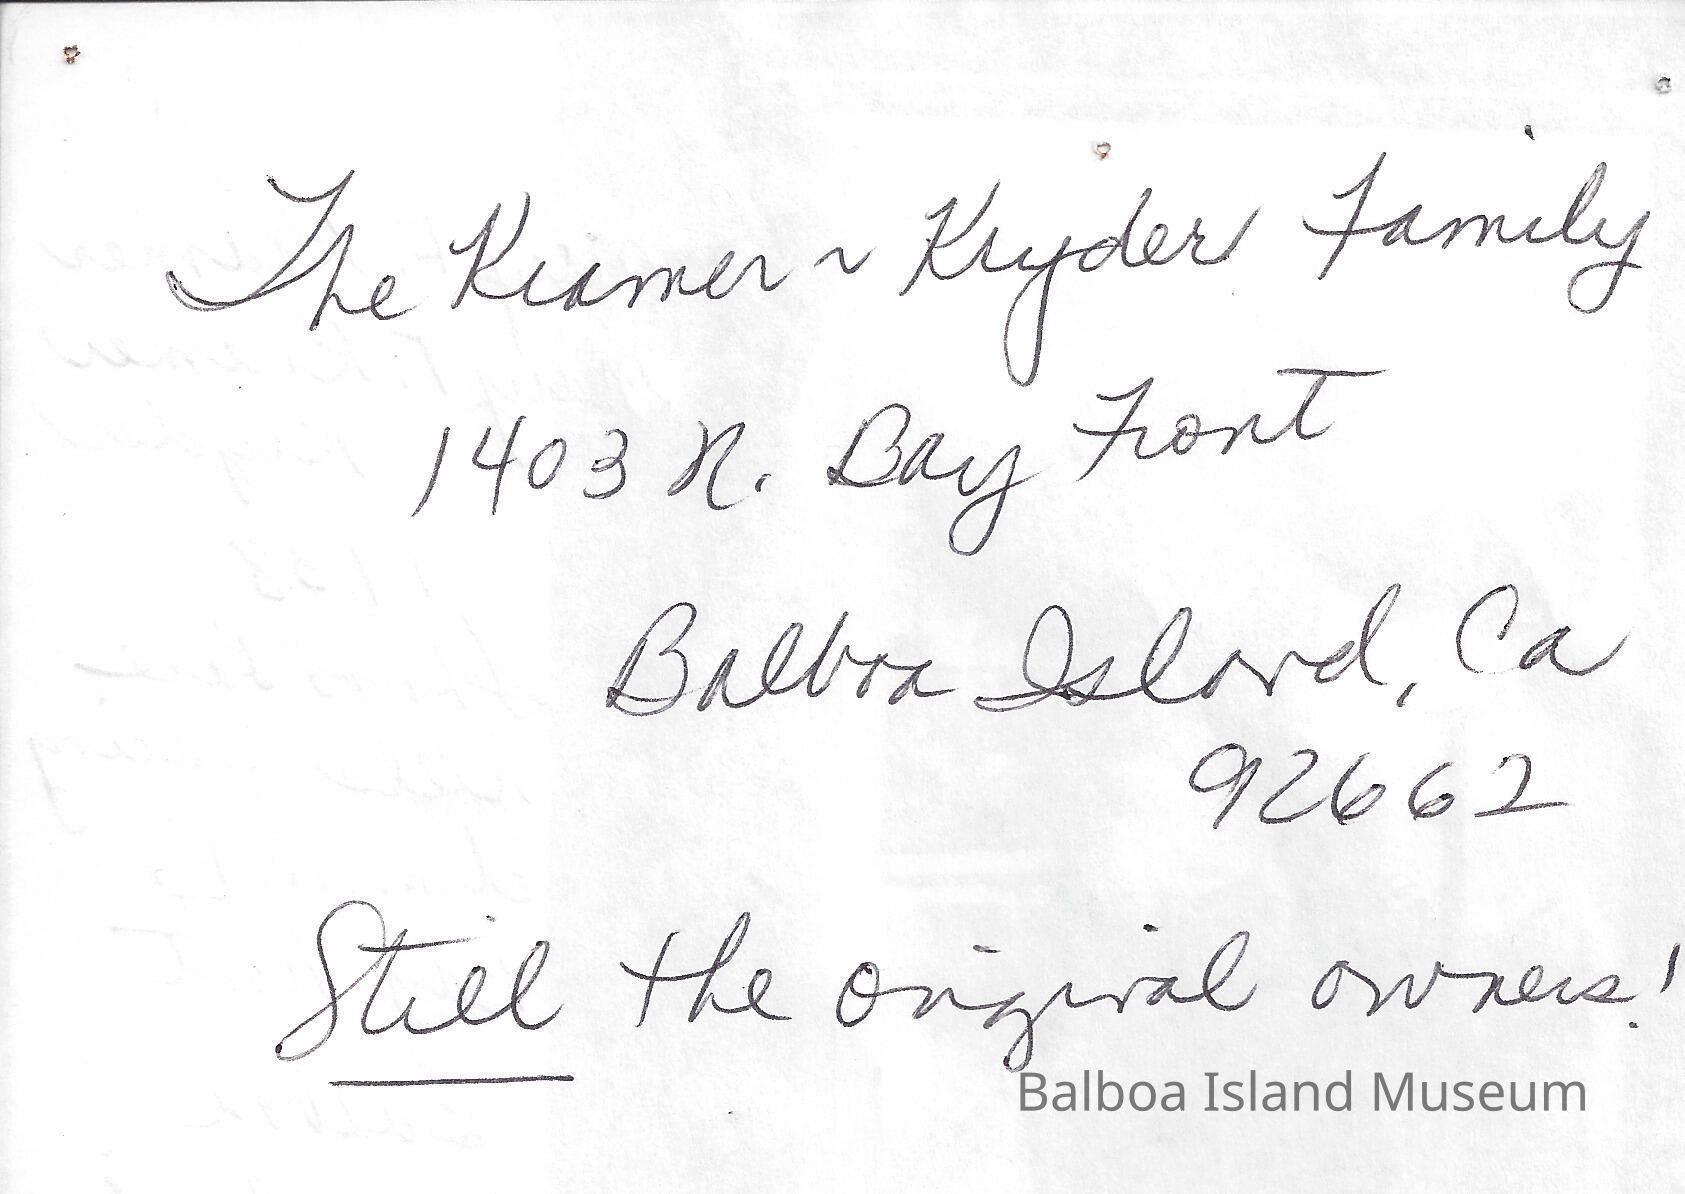 The Kramer ~ Kryder Family
1403 N. Bay Front
Balboa Island, Ca
92662
Still the original owners!
Balboa Island Museum